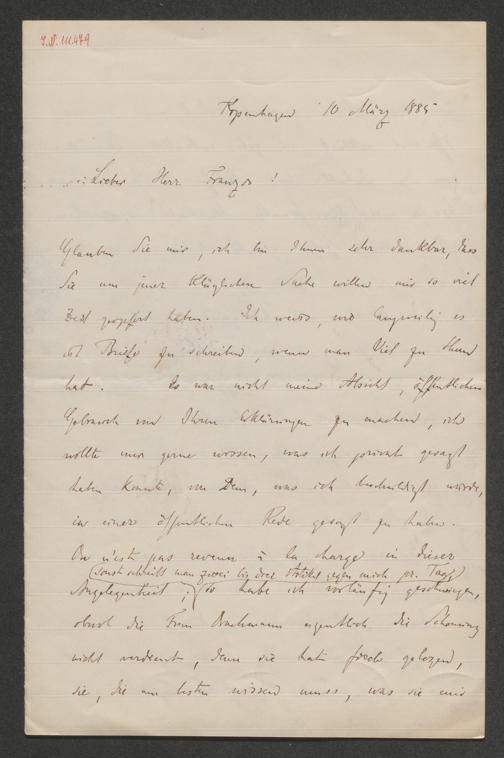 I.N. 111.479
Kopenhagen 10 März 1885
Lieber Herr Franzos!
Glauben Sie mir, ich bin Ihnen sehr dankbar, dass
Sie um jener kläglichen Sache willen mir so viel
Zeit geopfert haben. Ich weiss, wie langweilig es
ist Briefe zu schreiben, wenn man Viel zu thun
hat. Es war nicht meine Absicht, öffentlichen
Gebrauch von Ihren Erklärungen zu machen, ich
wollte nur gerne wissen, was ich privat gesagt
haben konnte, von Dem, was ich beschuldigt wurde,
in einer öffentlichen Rede gesagt zu haben.
On n'est pas revenu à la charge in dieser
(sonst schreibt man zwei bis drei Artikel gegen mich pr. Tag)
Angelegenheit; so habe ich vorläufig geschwiegen,
obwol die Frau eigentlich die Schonung
nicht verdient, denn sie hat frech gelogen,
sie, die am besten wissen muss, was sie mir